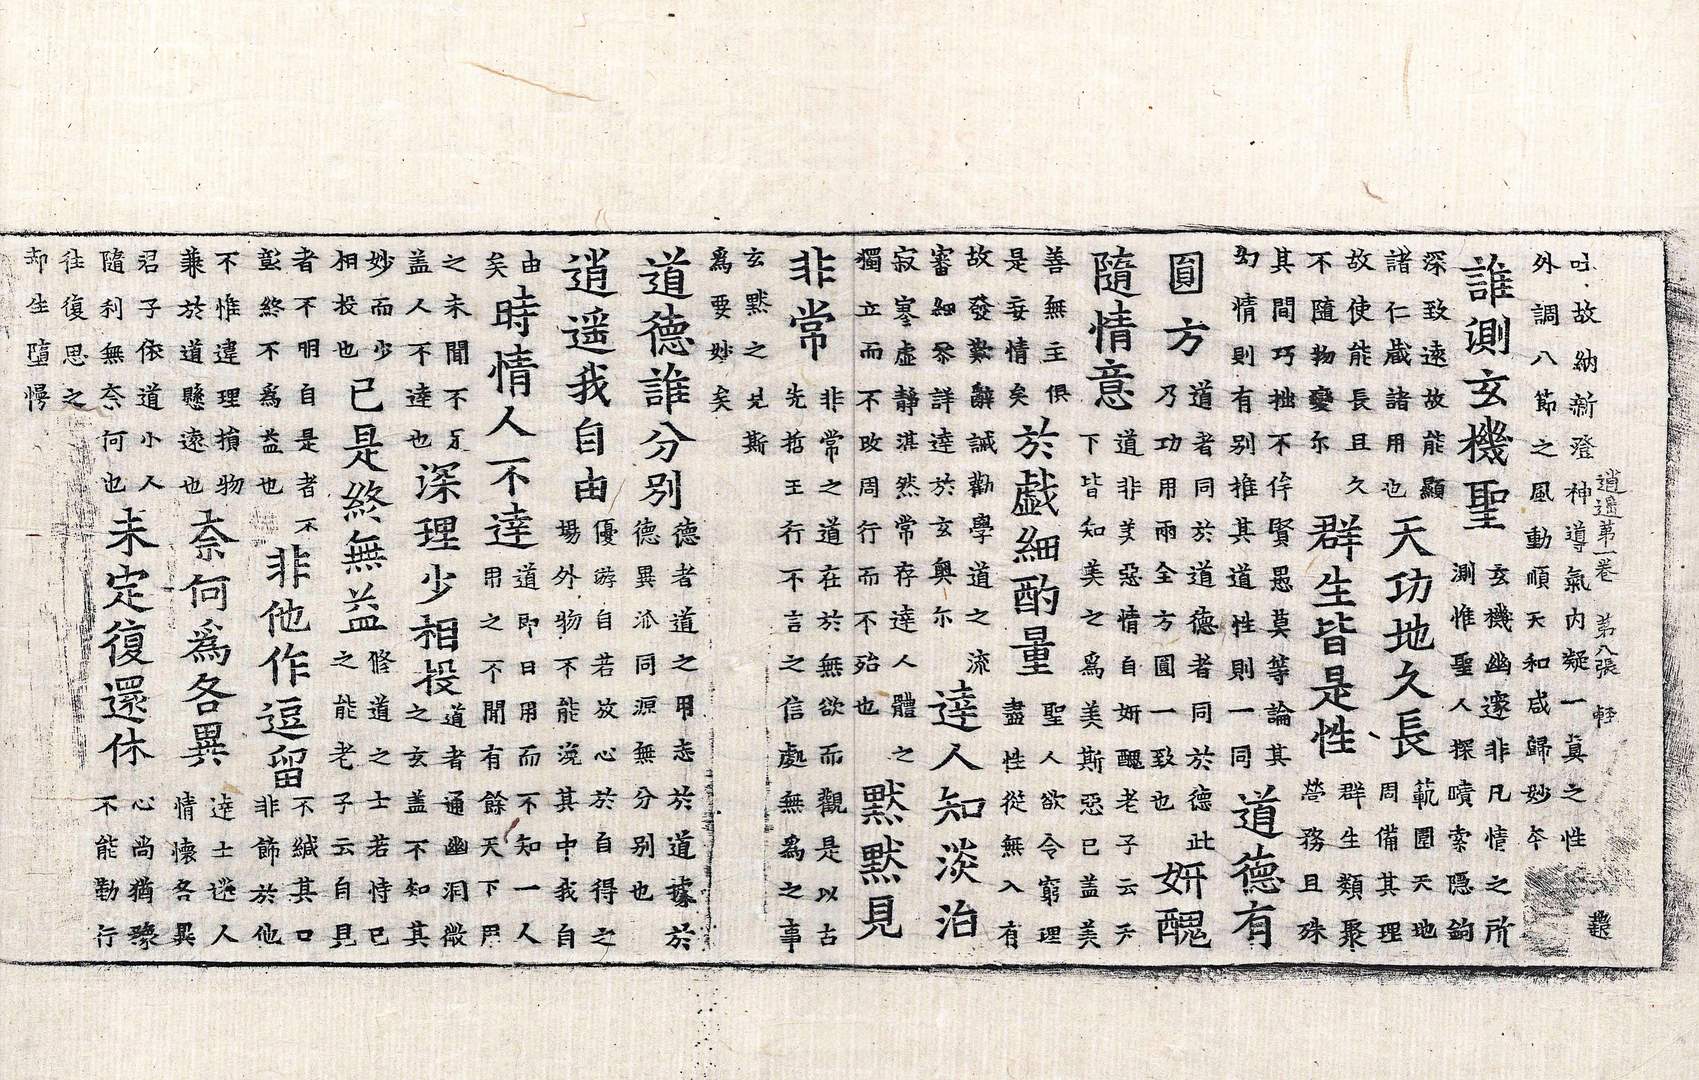 吐故納新澄神導氣內凝一真之性
外調八節之風動順天和咸歸妙本
逍遥第一卷 第八張 軽
誰測玄機聖 玄機幽邃非凡情之所 測惟聖人探賾索隱鈎
深致遠故能顯 諸仁藏諸用也 天功地久長 範圍天地 周備其理
故使能長且久 不隨物變尓 群生皆是性 群生類聚 營務且殊
其間巧拙不侔賢愚莫等論其 幻情則有別推其道性則一同 道德有
圓方 道者同於道德者同於德此 乃功用兩全方圓一致也 妍醜
隨情意 道非美惡情自妍醜老子云天 下皆知美之爲美斯惡已盖美
善無主俱 是妄情矣 於戲細酌量 聖人欲令窮理 盡性從無入有
故發歎辭誠勸學道之流 審細叅詳達於玄奧尓 達人知淡治
寂寥虛靜湛然常存達人體之 獨立而不改周行而不殆也 默默見
非常 非常之道在於無欲而觀是以古 先哲王行不言之信處無爲之事
玄默之見斯 爲要妙矣
道德誰分別 德者道之用志於道據於 德異派同源無分別也
逍遥我自由 優游自若放心於自得之 場外物不能滑其中我自
由矣 時情人不達 道即日用而不知一人 用之不聞有餘天下用
之未聞不足 盖人不達也 深理少相投 道者通幽洞微 之玄盖不知其
妙而少 相投也 已是終無益 修道之士若恃已 之能老子云自見
者不明自是者不 彰終不爲益也 非他作逗留 不緘其口 非飾於他
不惟違理損物 兼於道懸遠也 奈何爲各異 達士迷人 情懷各異
君子依道小人 隨利無奈何也 未定復還休 心尚猶豫 不能勤行
往復思之 却生墮慢